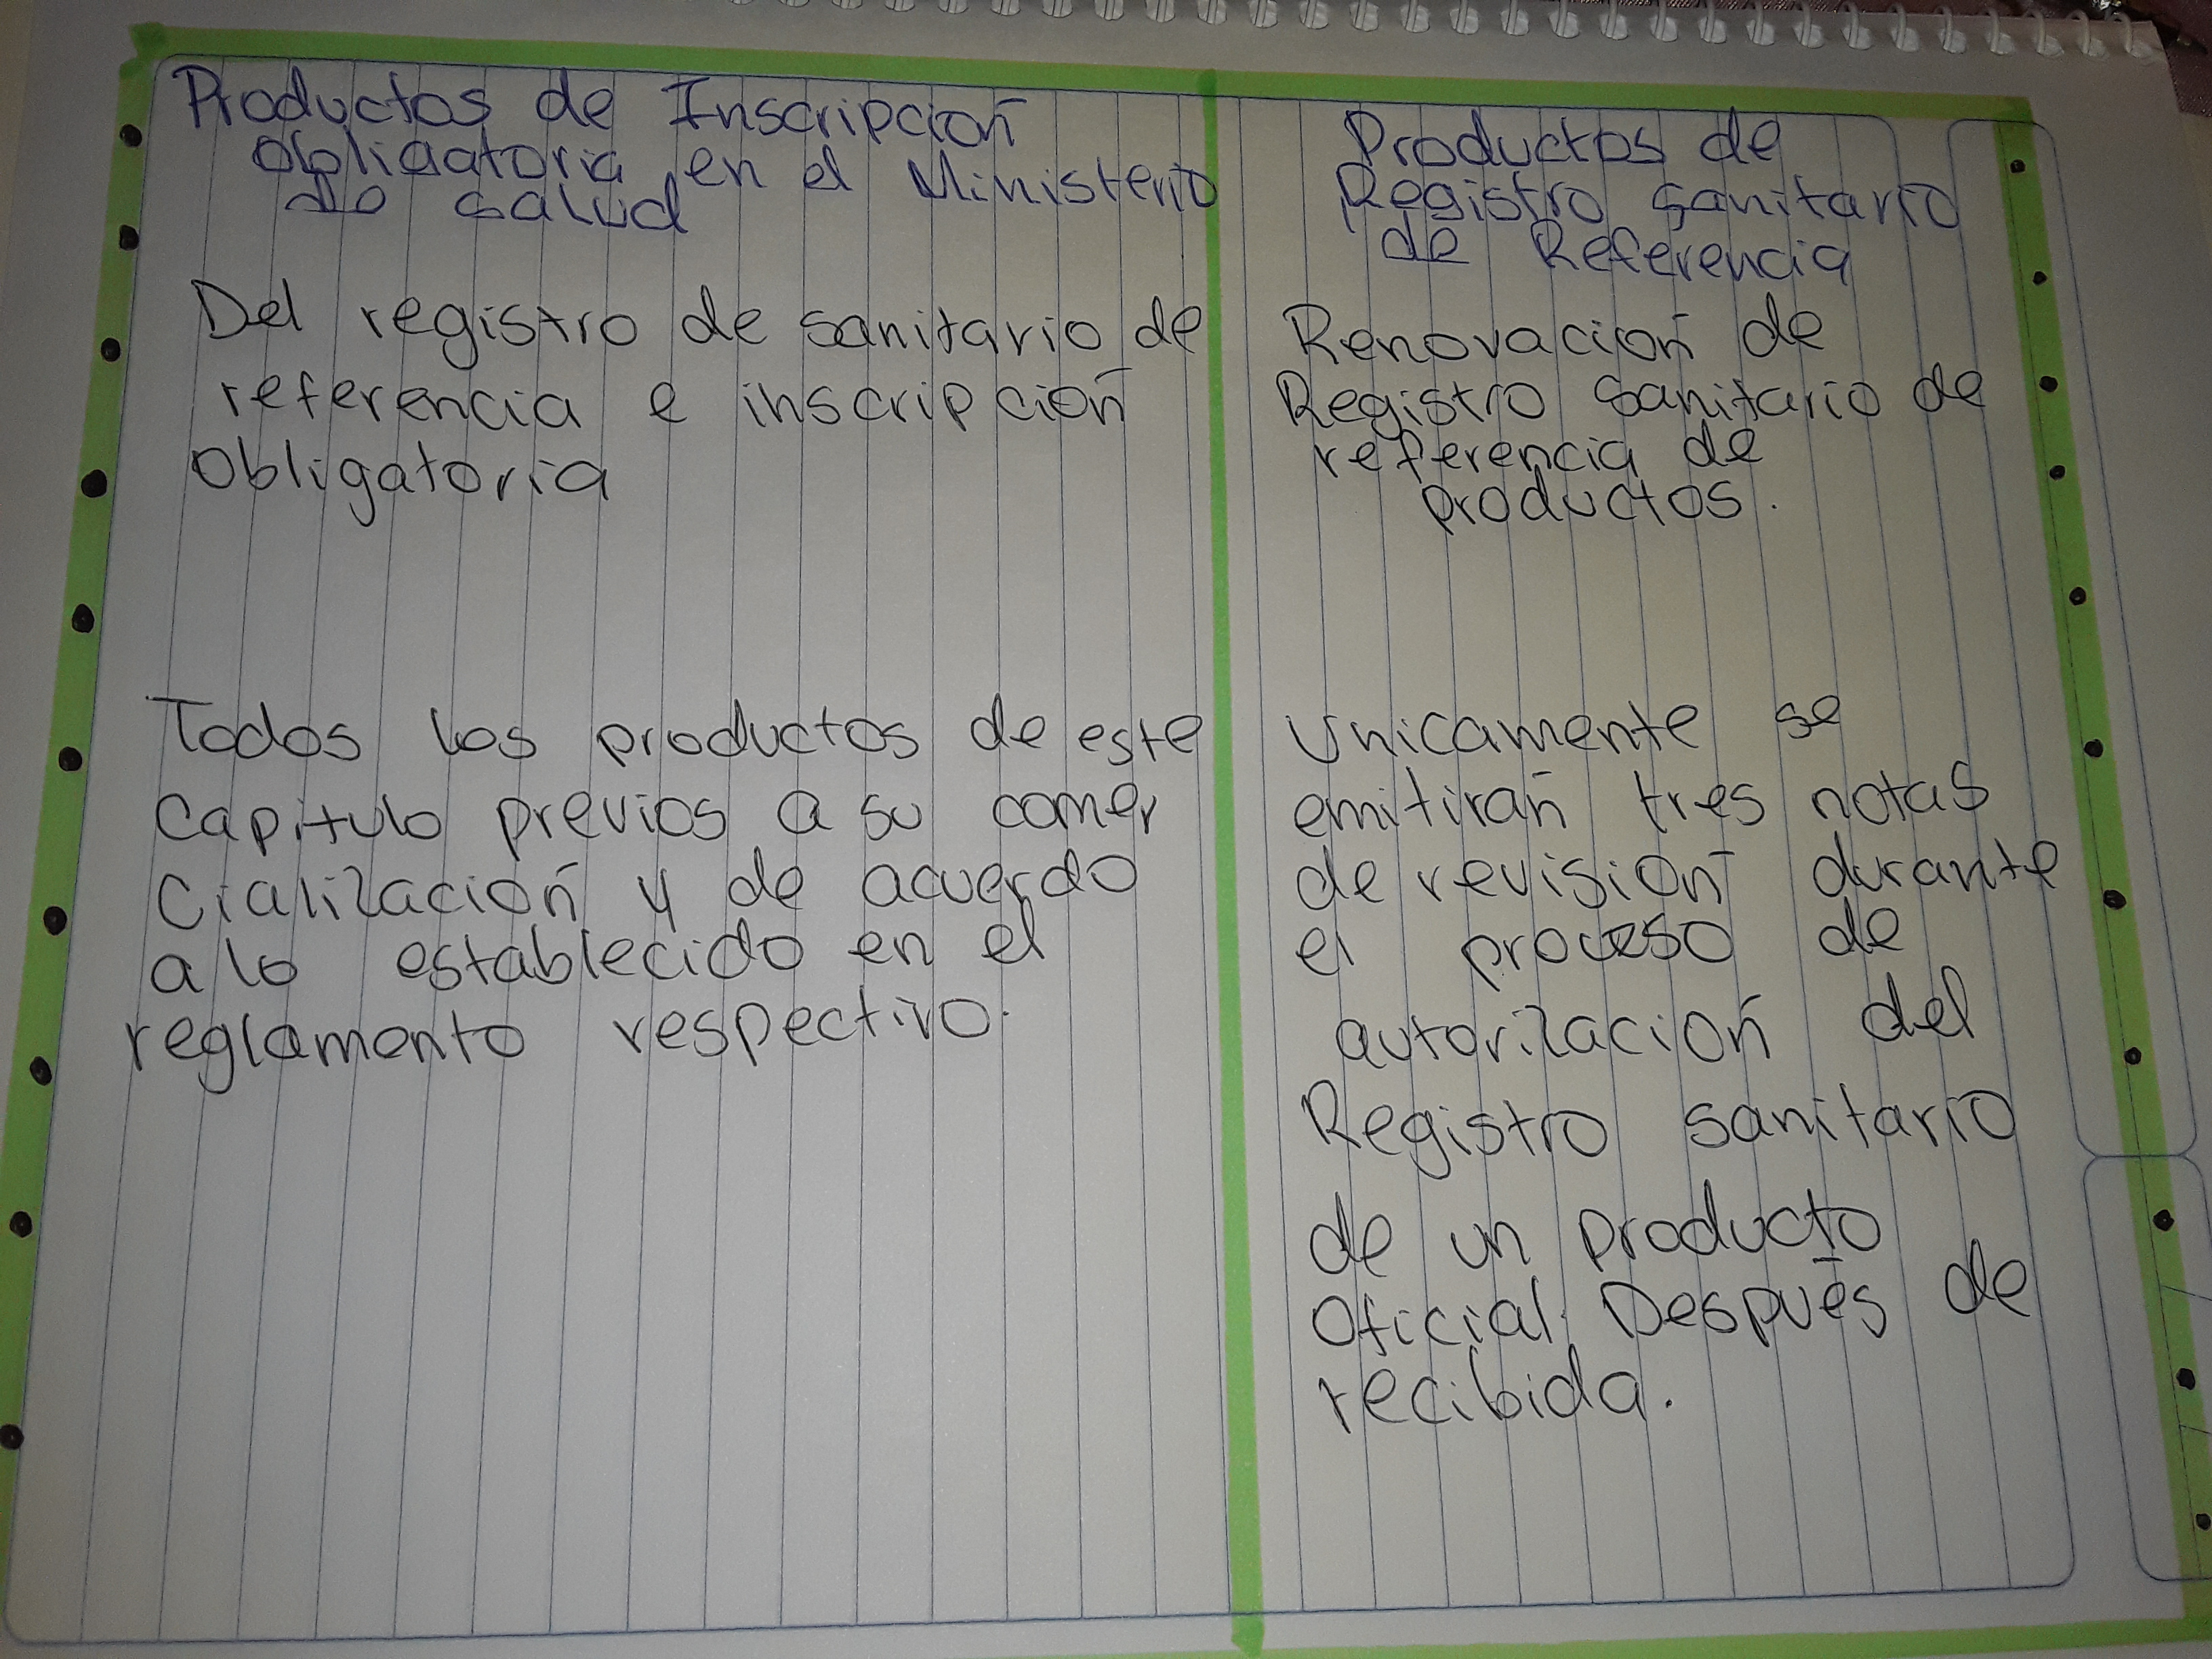 Productos de Inscripción
Obligatoria en el Ministerio
de salud
Del registro de sanitario de
referencia e inscripción
obligatoria
Todos los productos de este
Capitulo previos a su comer
cialización y de acuerdo
a lo establecido en el
reglamento respectivo.
Productos de
Registro sanitario
de Referencia
Renovación de
Registro Sanitario de
referencia de
productos.
Unicamente se
emitirán tres notas
de revisión durante
el proceso de
autorización del
Registro sanitario
de un producto
Oficial. Después de
recibida.